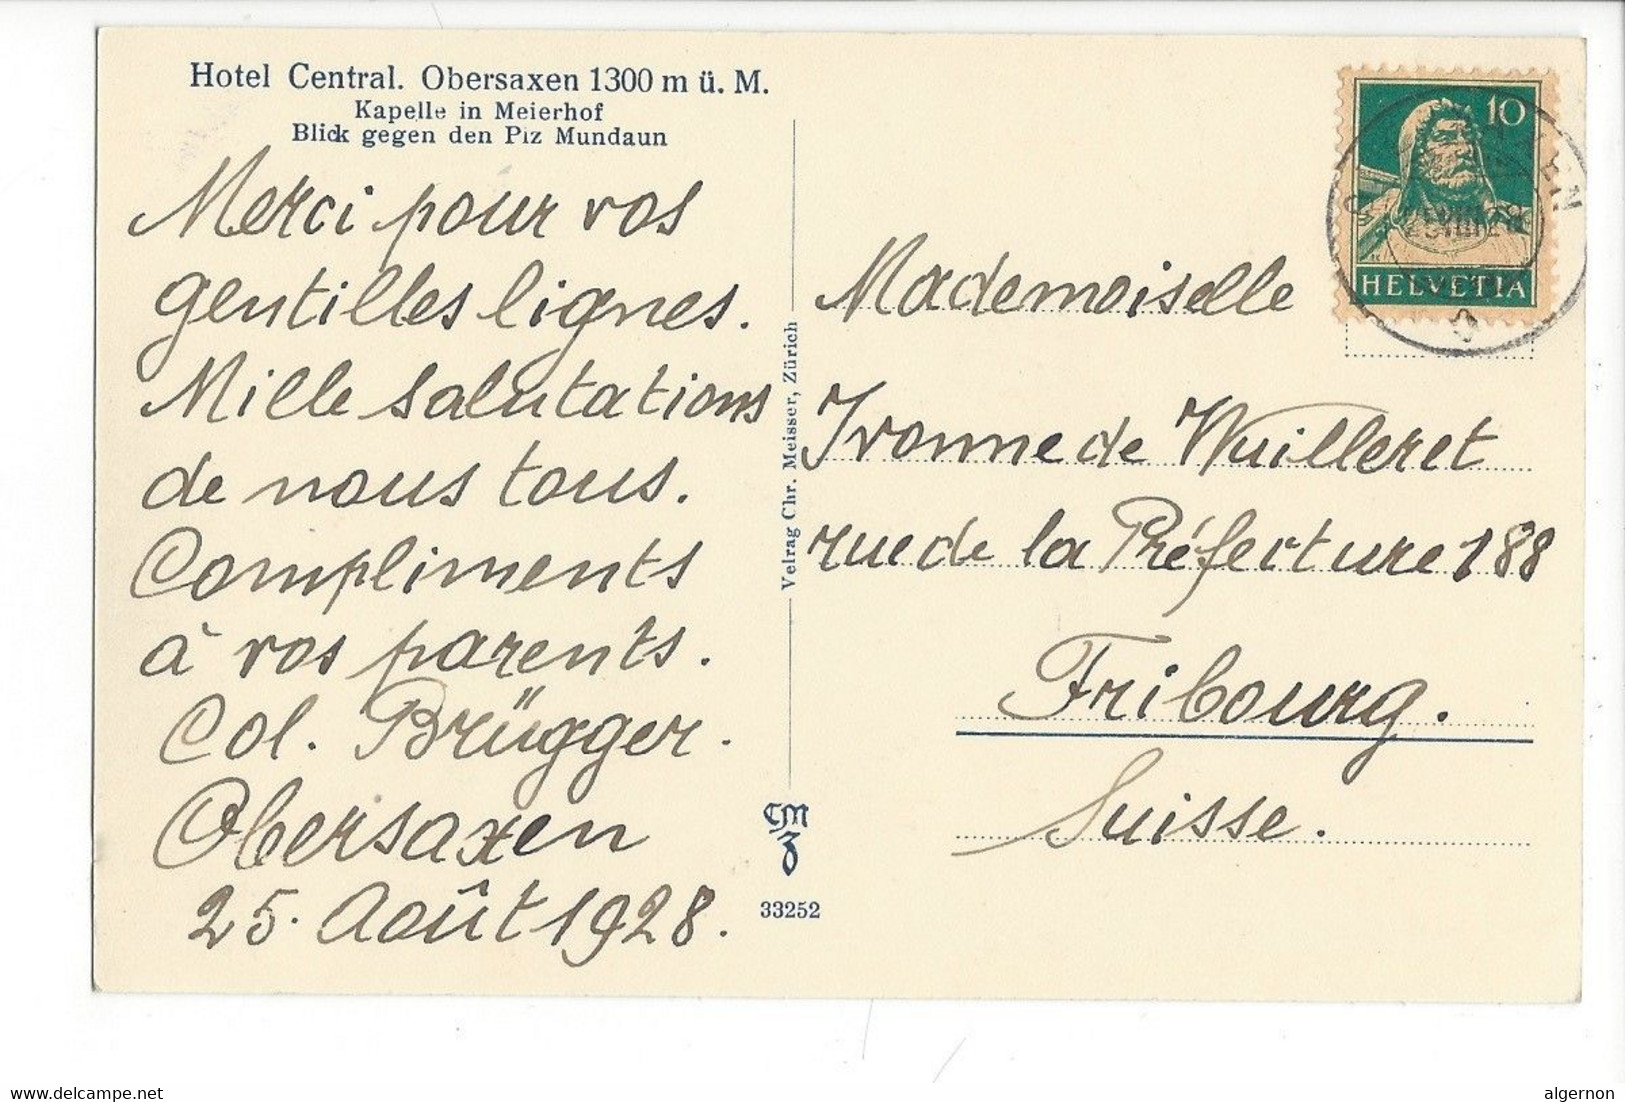 Hotel Central. Obersaxen 1300 m ü. M.
Kapelle in Meierhof
Blick gegen den Piz Mundaun
Merci pour vos
gentilles lignes.
Mille salutations
de nous tous.
Compliments
à vos parents.
Col. Brügger.
Obersaxen
25. Août 1928.
Velrag Chr. Meisser, Zürich
CMZ
33252
10
HELVETIA
Mademoiselle
Yvonne de Wuilleret
rue de la Préfecture 188
Fribourg.
Suisse.
www.delcampe.net
algernon